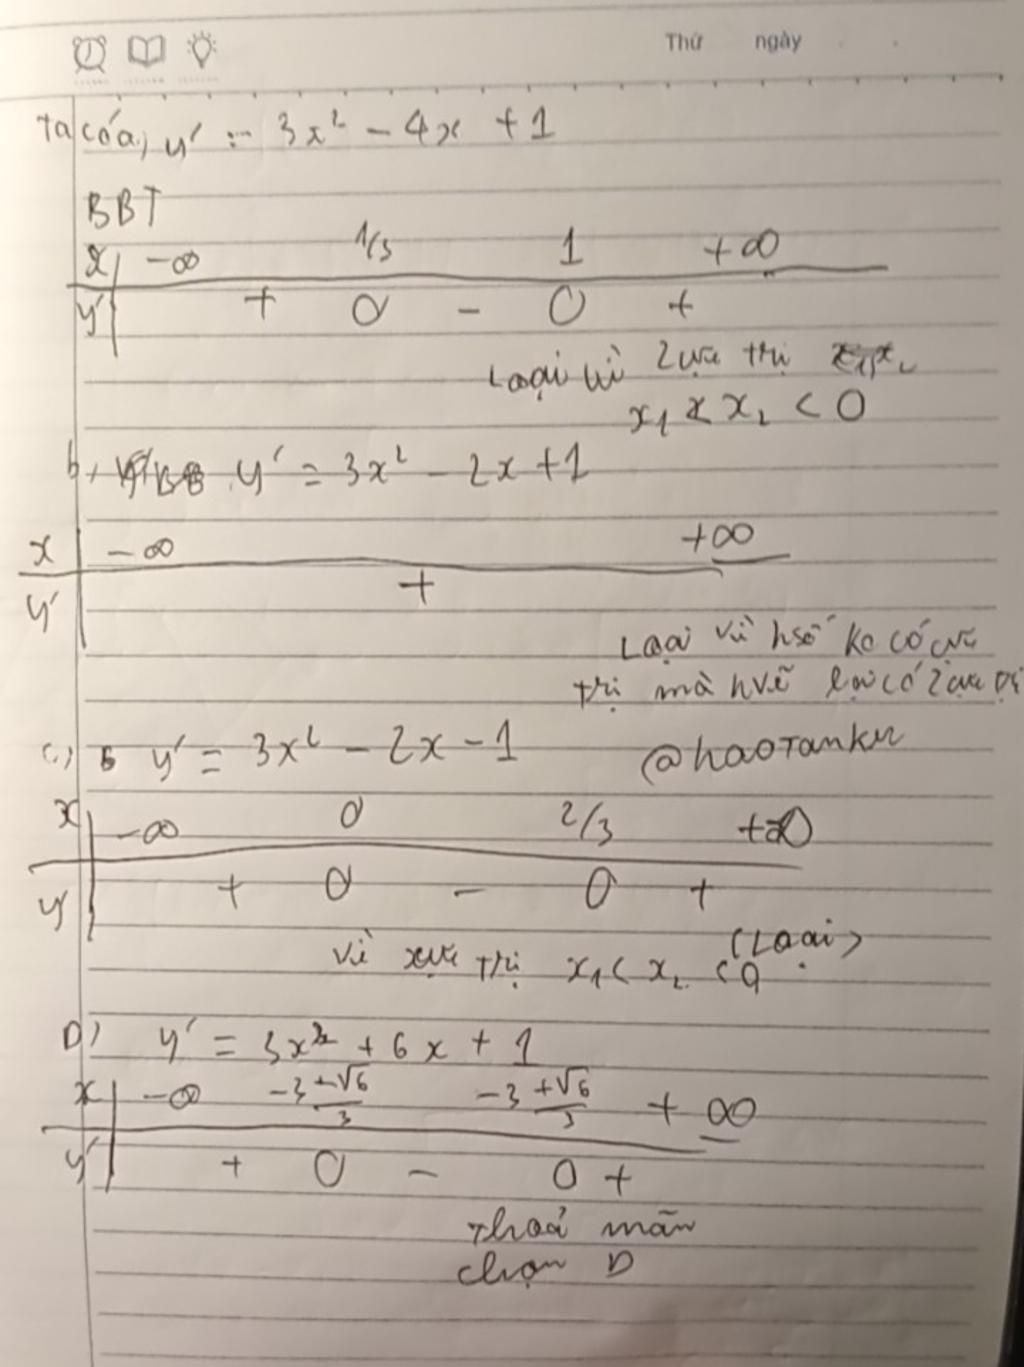 Thứ ngày
Ta có a, y' = 3x² - 4x + 1
BBT
x -∞ 1/3 1 +∞
y' + 0 - 0 +
Loại vì 2 cực trị
x₁ < x₂ < 0
b, y' = 3x² - 2x + 1
x -∞ +∞
y' +
Loại vì hsố ko có cực
trị mà hvẽ lại có 2 cực trị
c,) y' = 3x² - 2x - 1
@haoTamku
x -∞ 0 2/3 +∞
y' + 0 - 0 +
(Loại)
vì cực trị x₁ < x₂ < 0
D) y' = 3x² + 6x + 1
x -∞ -3+√6/3 -3+√6/3 +∞
y' + 0 - 0 +
Thoả mãn
chọn D